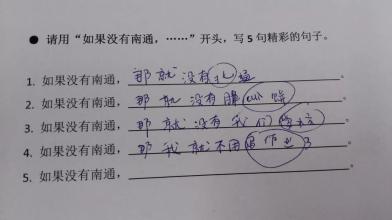 ● 请用“如果没有南通，……”开头，写 5 句精彩的句子。
1. 如果没有南通，那就没有孔益。
2. 如果没有南通，那就没有脆cui饼。
3. 如果没有南通，那就没有我们学校。
4. 如果没有南通，那我就不用写作业了。
5. 如果没有南通，。